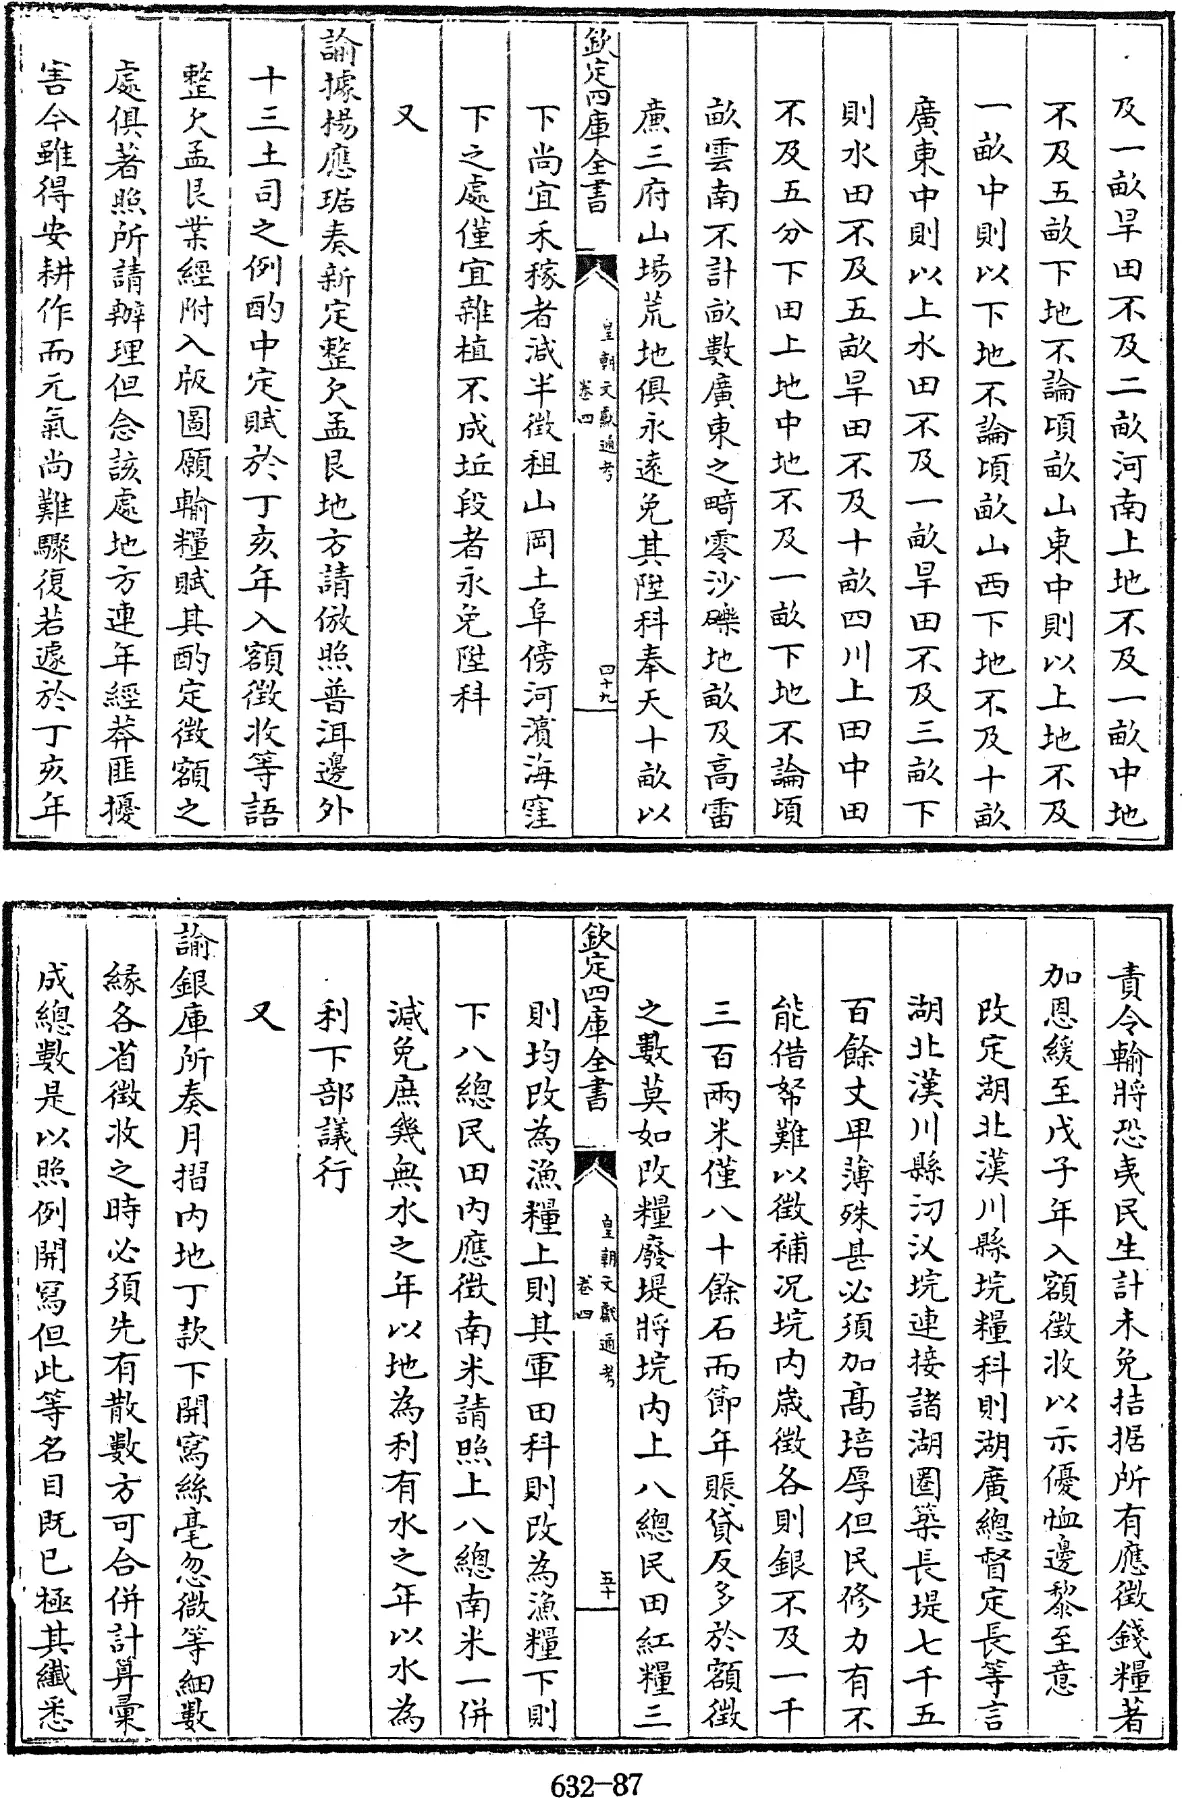 及一畝旱田不及二畝河南上地不及一畝中地
不及五畝下地不論頃畝山東中則以上地不及
一畝中則以下地不論頃畝山西下地不及十畝
廣東中則以上水田不及一畝旱田不及三畝下
則水田不及五畝旱田不及十畝四川上田中田
不及五分下田上地中地不及一畝下地不論頃
畝雲南不計畝數廣東之畸零沙礫地畝及高雷
廉三府山場荒地俱永遠免其陞科奉天十畝以
欽定四庫全書
皇朝文獻通考
卷四
四十九
下尚宜禾稼者減半徵租山岡土阜傍河濱海窪
下之處僅宜雜植不成坵段者永免陞科
又
諭據楊應琚奏新定整欠孟艮地方請倣照普洱邊外
十三土司之例酌中定賦於丁亥年入額徵收等語
整欠孟艮業經附入版圖願輸糧賦其酌定徵額之
處俱著照所請辦理但念該處地方連年經莽匪擾
害今雖得安耕作而元氣尚難驟復若遽於丁亥年
責令輸將恐夷民生計未免拮据所有應徵錢糧著
加恩緩至戊子年入額徵收以示優恤邊黎至意
改定湖北漢川縣垸糧科則湖廣總督定長等言
湖北漢川縣汈汊垸連接諸湖圈築長堤七千五
百餘丈卑薄殊甚必須加高培厚但民修力有不
能借帑難以徵補況垸內歲徵各則銀不及一千
三百兩米僅八十餘石而節年賬貸反多於額徵
之數莫如改糧廢堤將垸內上八總民田紅糧三
欽定四庫全書
皇朝文獻通考
卷四
五十
則均改為漁糧上則其軍田科則改為漁糧下則
下八總民田內應徵南米請照上八總南米一併
減免庶幾無水之年以地為利有水之年以水為
利下部議行
又
諭銀庫所奏月摺內地丁款下開寫絲毫忽微等細數
緣各省徵收之時必須先有散數方可合併計算彙
成總數是以照例開寫但此等名目既已極其纖悉
632-87